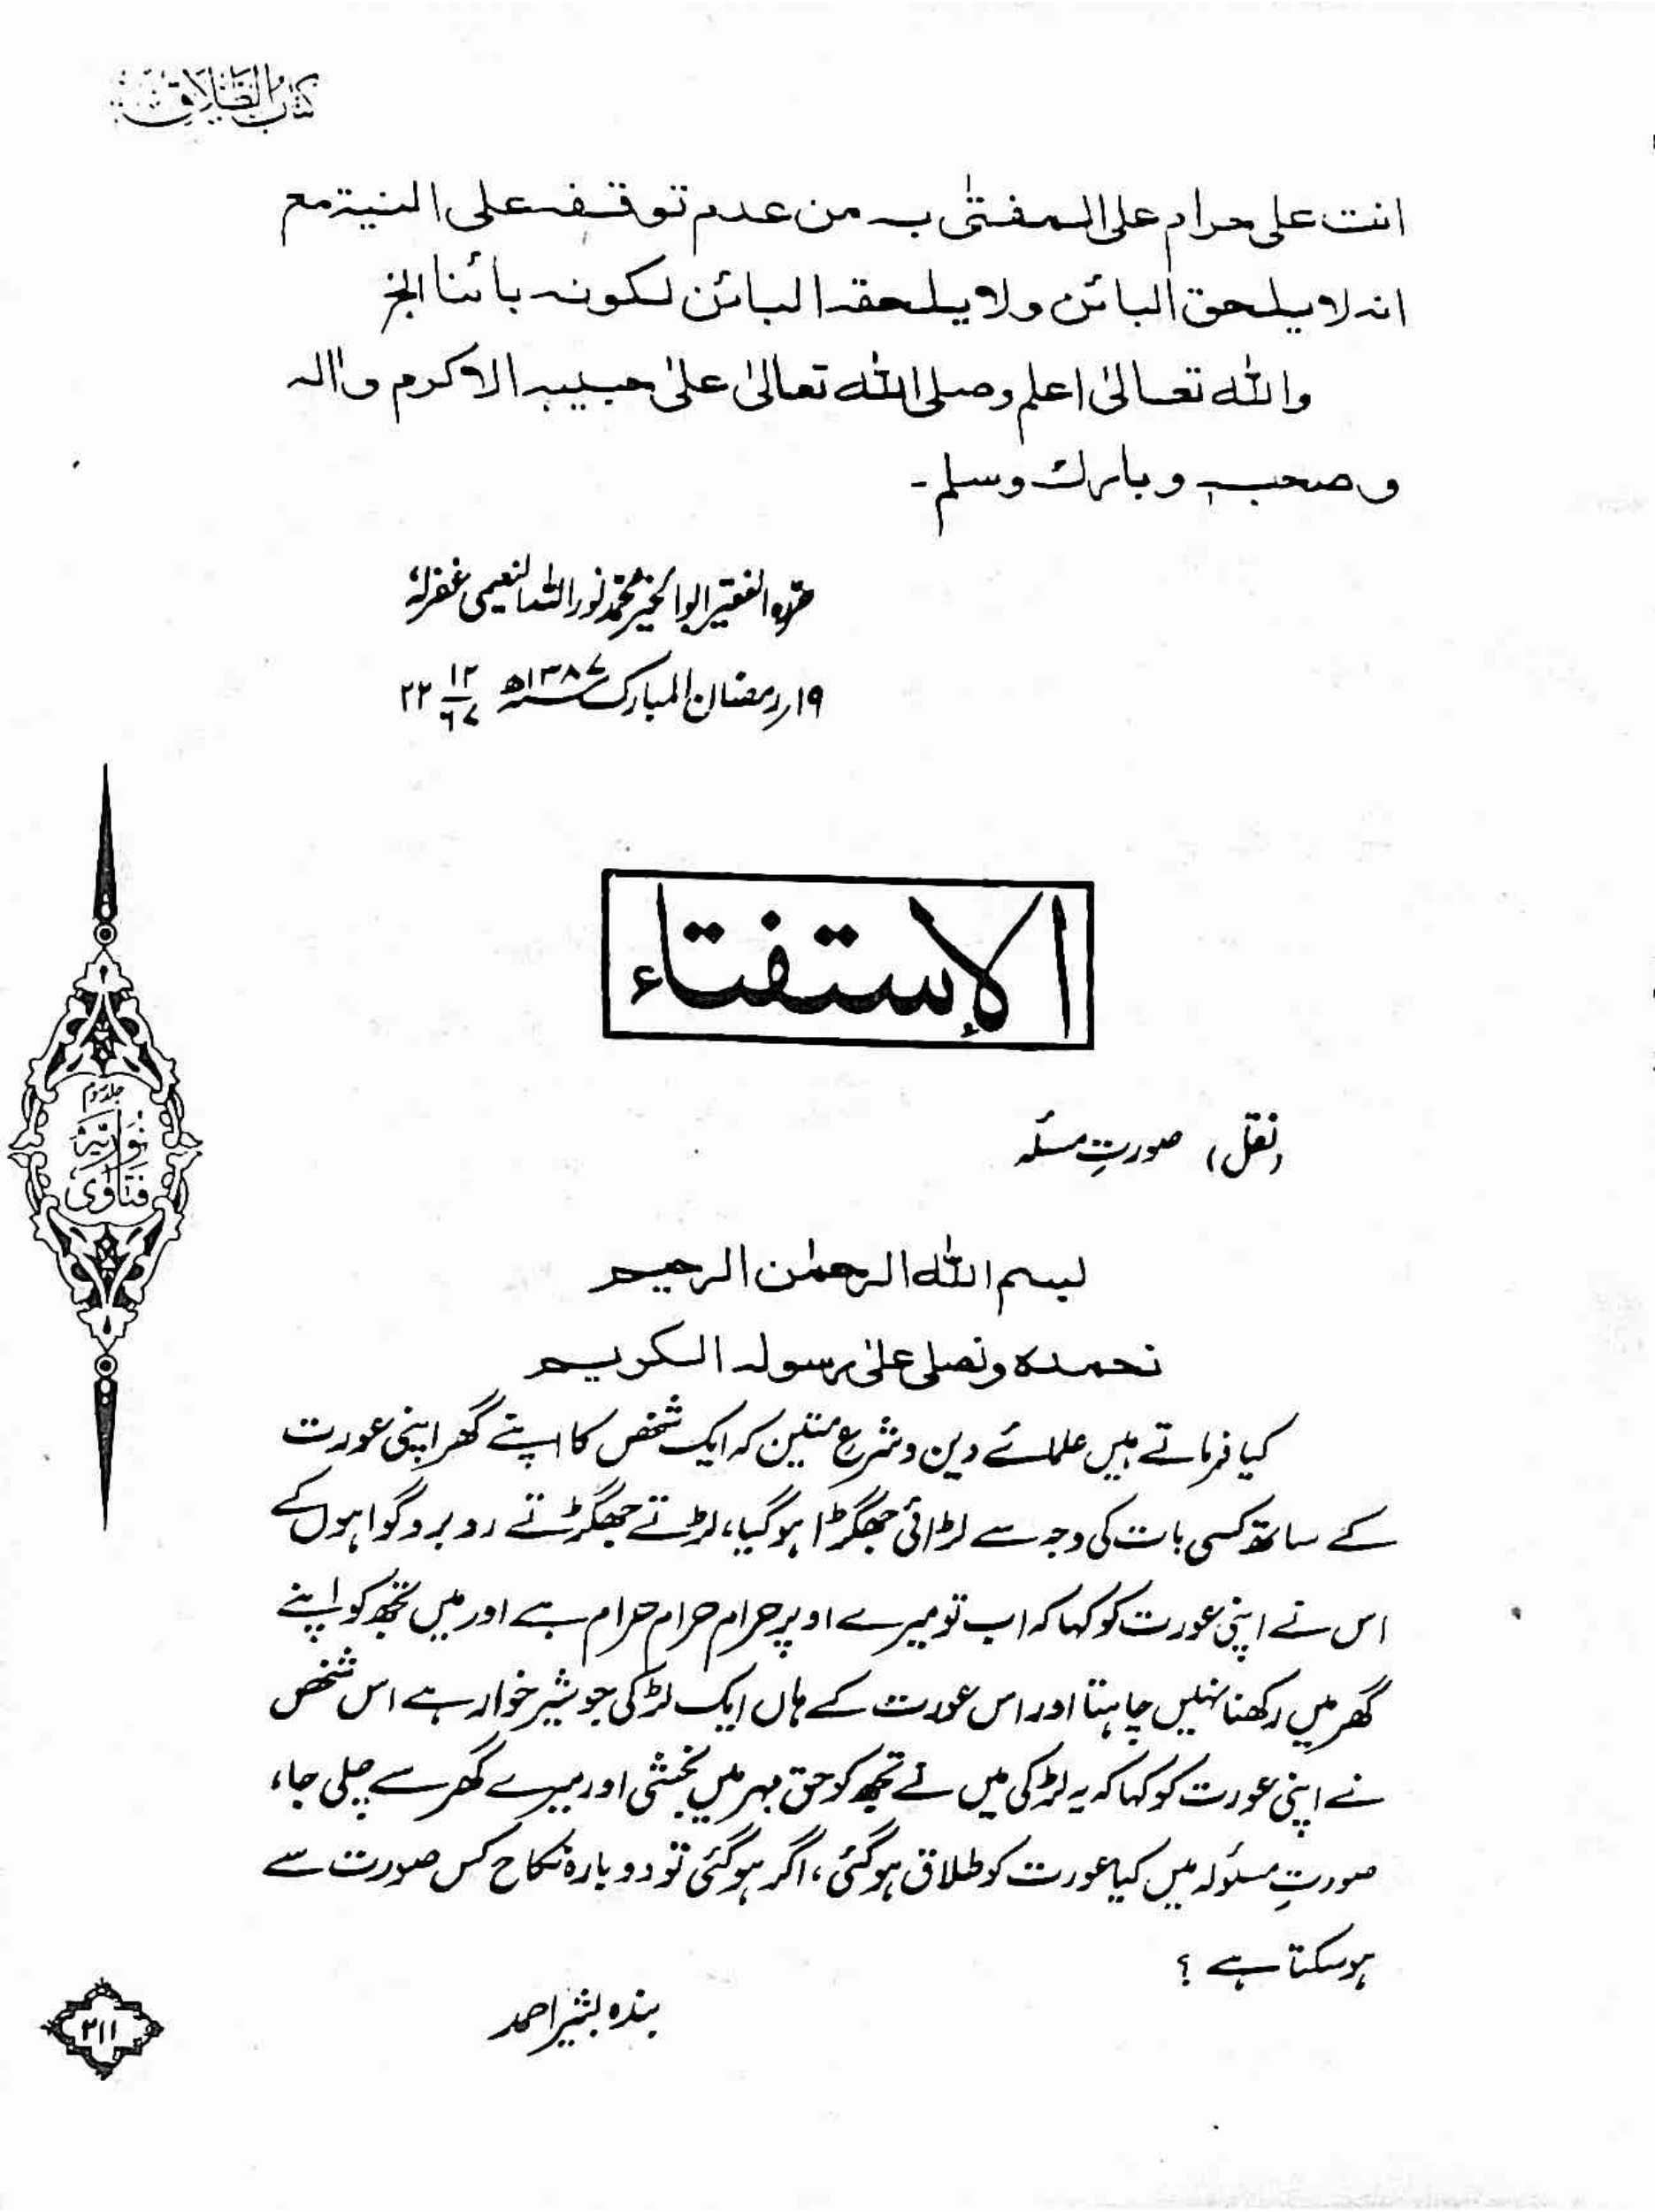 کتاب الطلاق
انت علی حرام علی المفتیٰ بہ من عدم توقفہ علی النیة مع
انہ لا یلحق البائن ولا یلحقہ البائن لکونہ بائنا الخ
واللہ تعالیٰ اعلم وصلی اللہ تعالیٰ علیٰ حبیبہ الاکرم واٰلہ
وصحبہ وبارک وسلم۔
حررہ الفقیر ابوالخیر محمد نور اللہ النعیمی غفرلہٗ
۱۹؍رمضان المبارک ۱۳۸۷ھ ۲۲/۱۲/۶۷
الإستفتاء
(نقل) صورتِ مسئلہ
بسم اللہ الرحمٰن الرحیم
نحمدہ ونصلی علیٰ رسولہ الکریم
کیا فرماتے ہیں علمائے دین و شرع متین کہ ایک شخص کا اپنے گھر اپنی عورت
کے ساتھ کسی بات کی وجہ سے لڑائی جھگڑا ہوگیا، لڑتے جھگڑتے روبرو گواہوں کے
اس نے اپنی عورت کو کہا کہ اب تو میرے اوپر حرام حرام حرام ہے اور میں تجھ کو اپنے
گھر میں رکھنا نہیں چاہتا اور اس عورت کے ہاں ایک لڑکی جو شیر خوار ہے اس شخص
نے اپنی عورت کو کہا کہ یہ لڑکی میں نے تجھ کو حق مہر میں بخشی اور میرے گھر سے چلی جا،
صورتِ مسئولہ میں کیا عورت کو طلاق ہوگئی، اگر ہوگئی تو دوبارہ نکاح کس صورت سے
ہوسکتا ہے ؟
بندہ بشیر احمد
جلد سوم
فتاوی نوریہ
۲۱۱